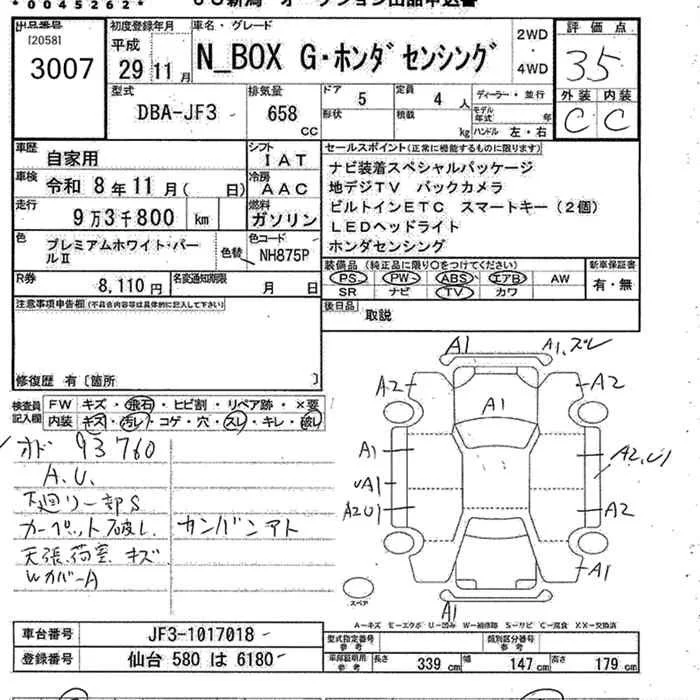 *0045262*
出品番号
120581
3007
初度登録年月
平成
29年11月
車名・グレード
N_BOX G・ホンダセンシング
2WD
・
4WD
評価点
3.5
外装 内装
C C
型式
DBA-JF3
排気量
658
CC
ドア
5
形状
定員
4人
積載
kg
ディーラー・並行
モデル年式 年
ハンドル 左・右
車歴
自家用
車検
令和 8年11月( 日)
走行
9万3千800 km
色
プレミアムホワイト・パールⅡ
色替
シフト
IAT
冷房
AAC
燃料
ガソリン
色コード
NH875P
セールスポイント(正常に機能するものに限ります)
ナビ装着スペシャルパッケージ
地デジTV バックカメラ
ビルトインETC スマートキー(2個)
LEDヘッドライト
ホンダセンシング
R券
8,110円
名変通知期限
月 日
装備品(純正品に限り○をつけてください)
PS PW ABS エアB AW
SR ナビ TV カワ
新車保証書
有・無
後日品
取説
注意事項申告欄(不具合内容等は具体的に記入して下さい)
修復歴 有〔箇所 〕
検査員記入欄
FW キズ・飛石・ヒビ割・リペア跡・×要
内装 キズ・汚レ・コゲ・穴・スレ・キレ・破レ
オド 93760
A.U.
下廻リ一部S
カーペット破レ カンバンアト
天張 荷室 キズ
WカバーA
A1
A1,スレ
A2
A2
A1
A1
A2,U1
UA1
A2U1
A2
A1
A1
スペア
A―キズ E―エクボ U―凹み W―補修跡 S―サビ C―腐食 XX―交換済
車台番号
JF3-1017018
登録番号
仙台 580 は 6180
型式指定番号
参考
類別区分番号
参考
車庫証明用
参考
長さ 339 cm 幅 147 cm 高さ 179 cm